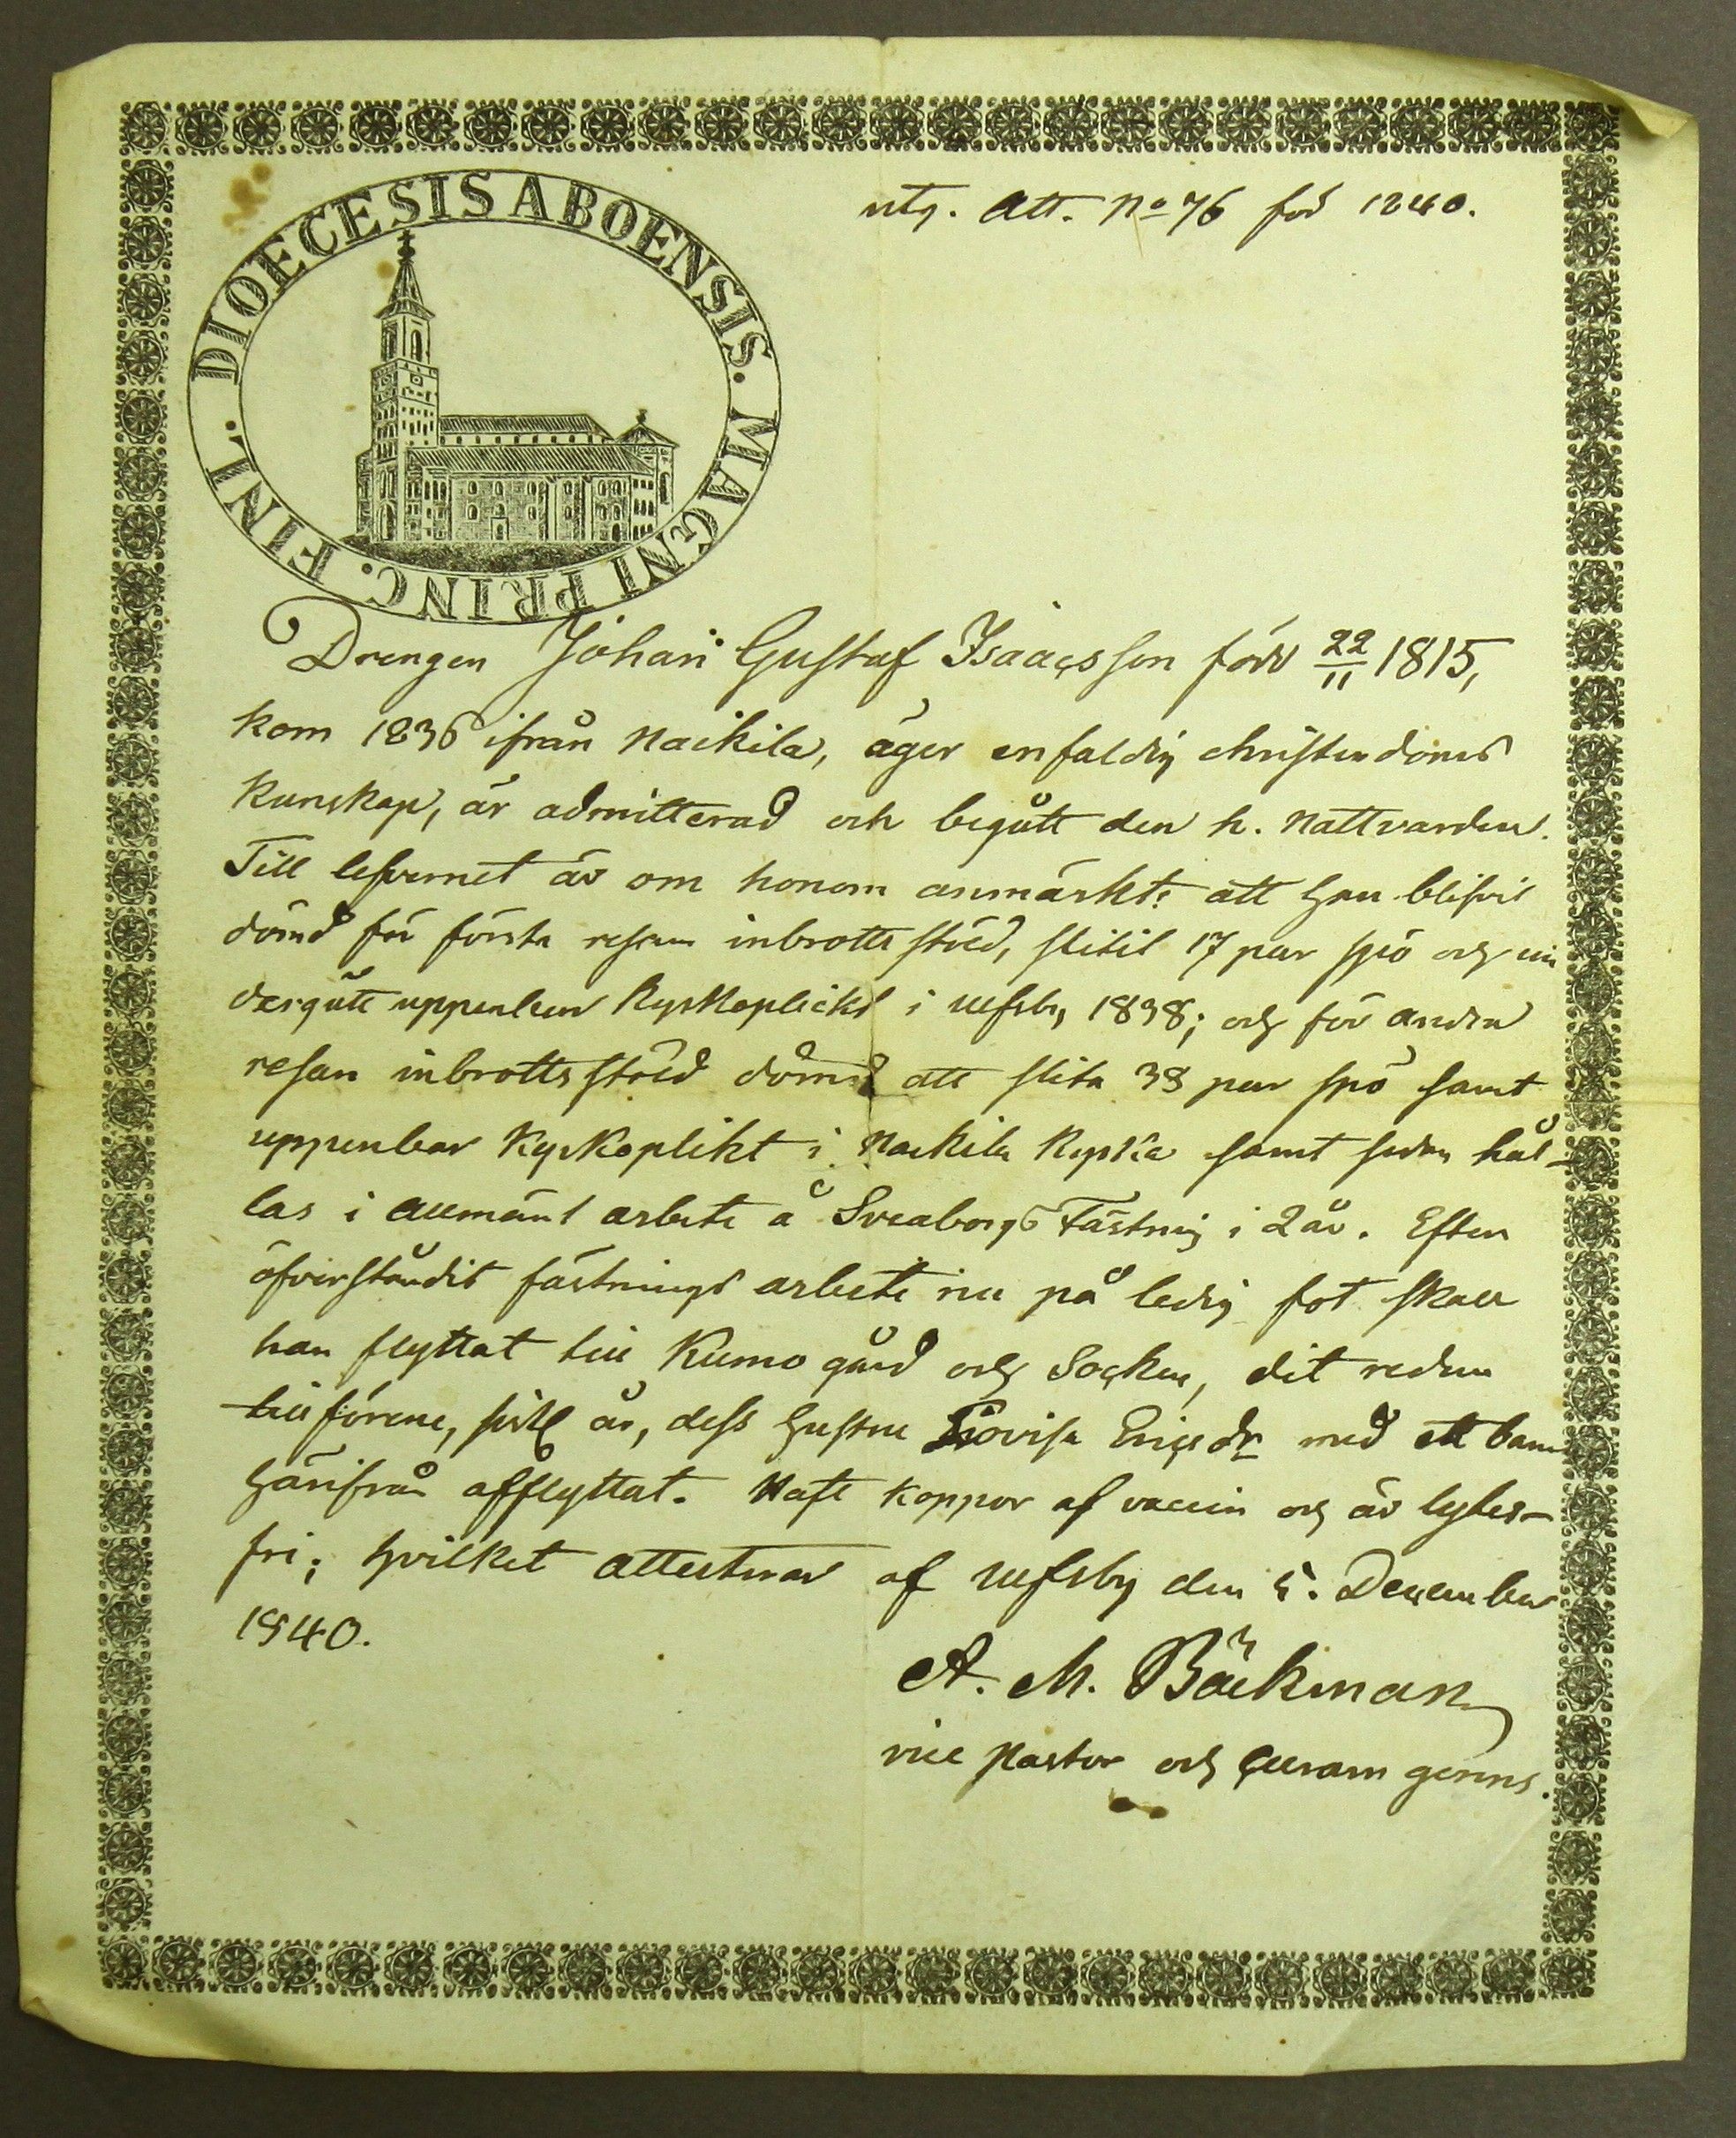 DIOECESIS ABOENSIS. MAGNI PRINC. FINL.
utg. Att. No 76 för 1840.
Drengen Johan Gustaf Isaacsson född 22/11 1815,
kom 1836 ifrån Nackila, äger enfaldig christendoms
kunskap, är admitterad och begått den h. Nattvarden.
Till lefvernet är om honom anmärkt: att han blifvit
dömd för första resan inbrottsstöld, slitit 17 par spö och un
dergått uppenbar Kyrkoplickt i Ulfsby 1838; och för andra
resan inbrottsstöld dömd att slita 38 par spö samt
uppenbar Kyrkoplikt i Nackila Kyrka samt sedan hål-
las i allmänt arbete å Sveaborgs Fästning i 2 år. Efter
öfverståndit fästnings arbete nu på ledig fot skall
han flyttat till Kumo gård och Socken, dit redan
tillförene, sistl år, dess hustru Lovisa Ericsdr med ett barn
härifrån afflyttat. Haft koppor af vaccin och är lytes-
fri; hvilket attesterar af Ulfsby den 5. December
1840.
A. M. Bäckman
vice Pastor och curam gerens.